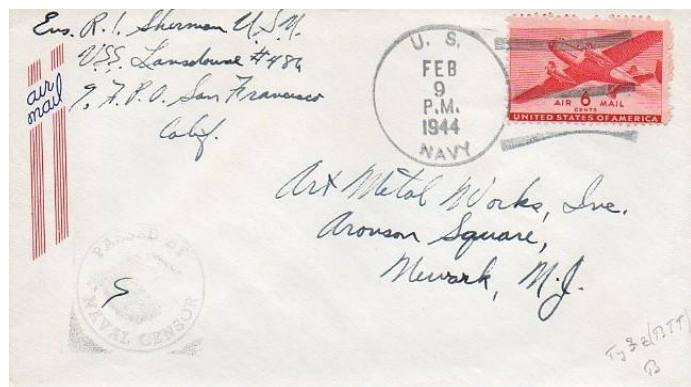 Ens. R. I. Sherman U.S.N.
U.S.S. Lansdowne #486
% F.P.O. San Francisco
Calif.
air
mail
U. S.
FEB
9
P.M.
1944
NAVY
AIR 6 MAIL
CENTS
UNITED STATES OF AMERICA
Art Metal Works, Inc.
Aronson Square,
Newark, N.J.
PASSED BY
NAVAL CENSOR
(BTT)
B